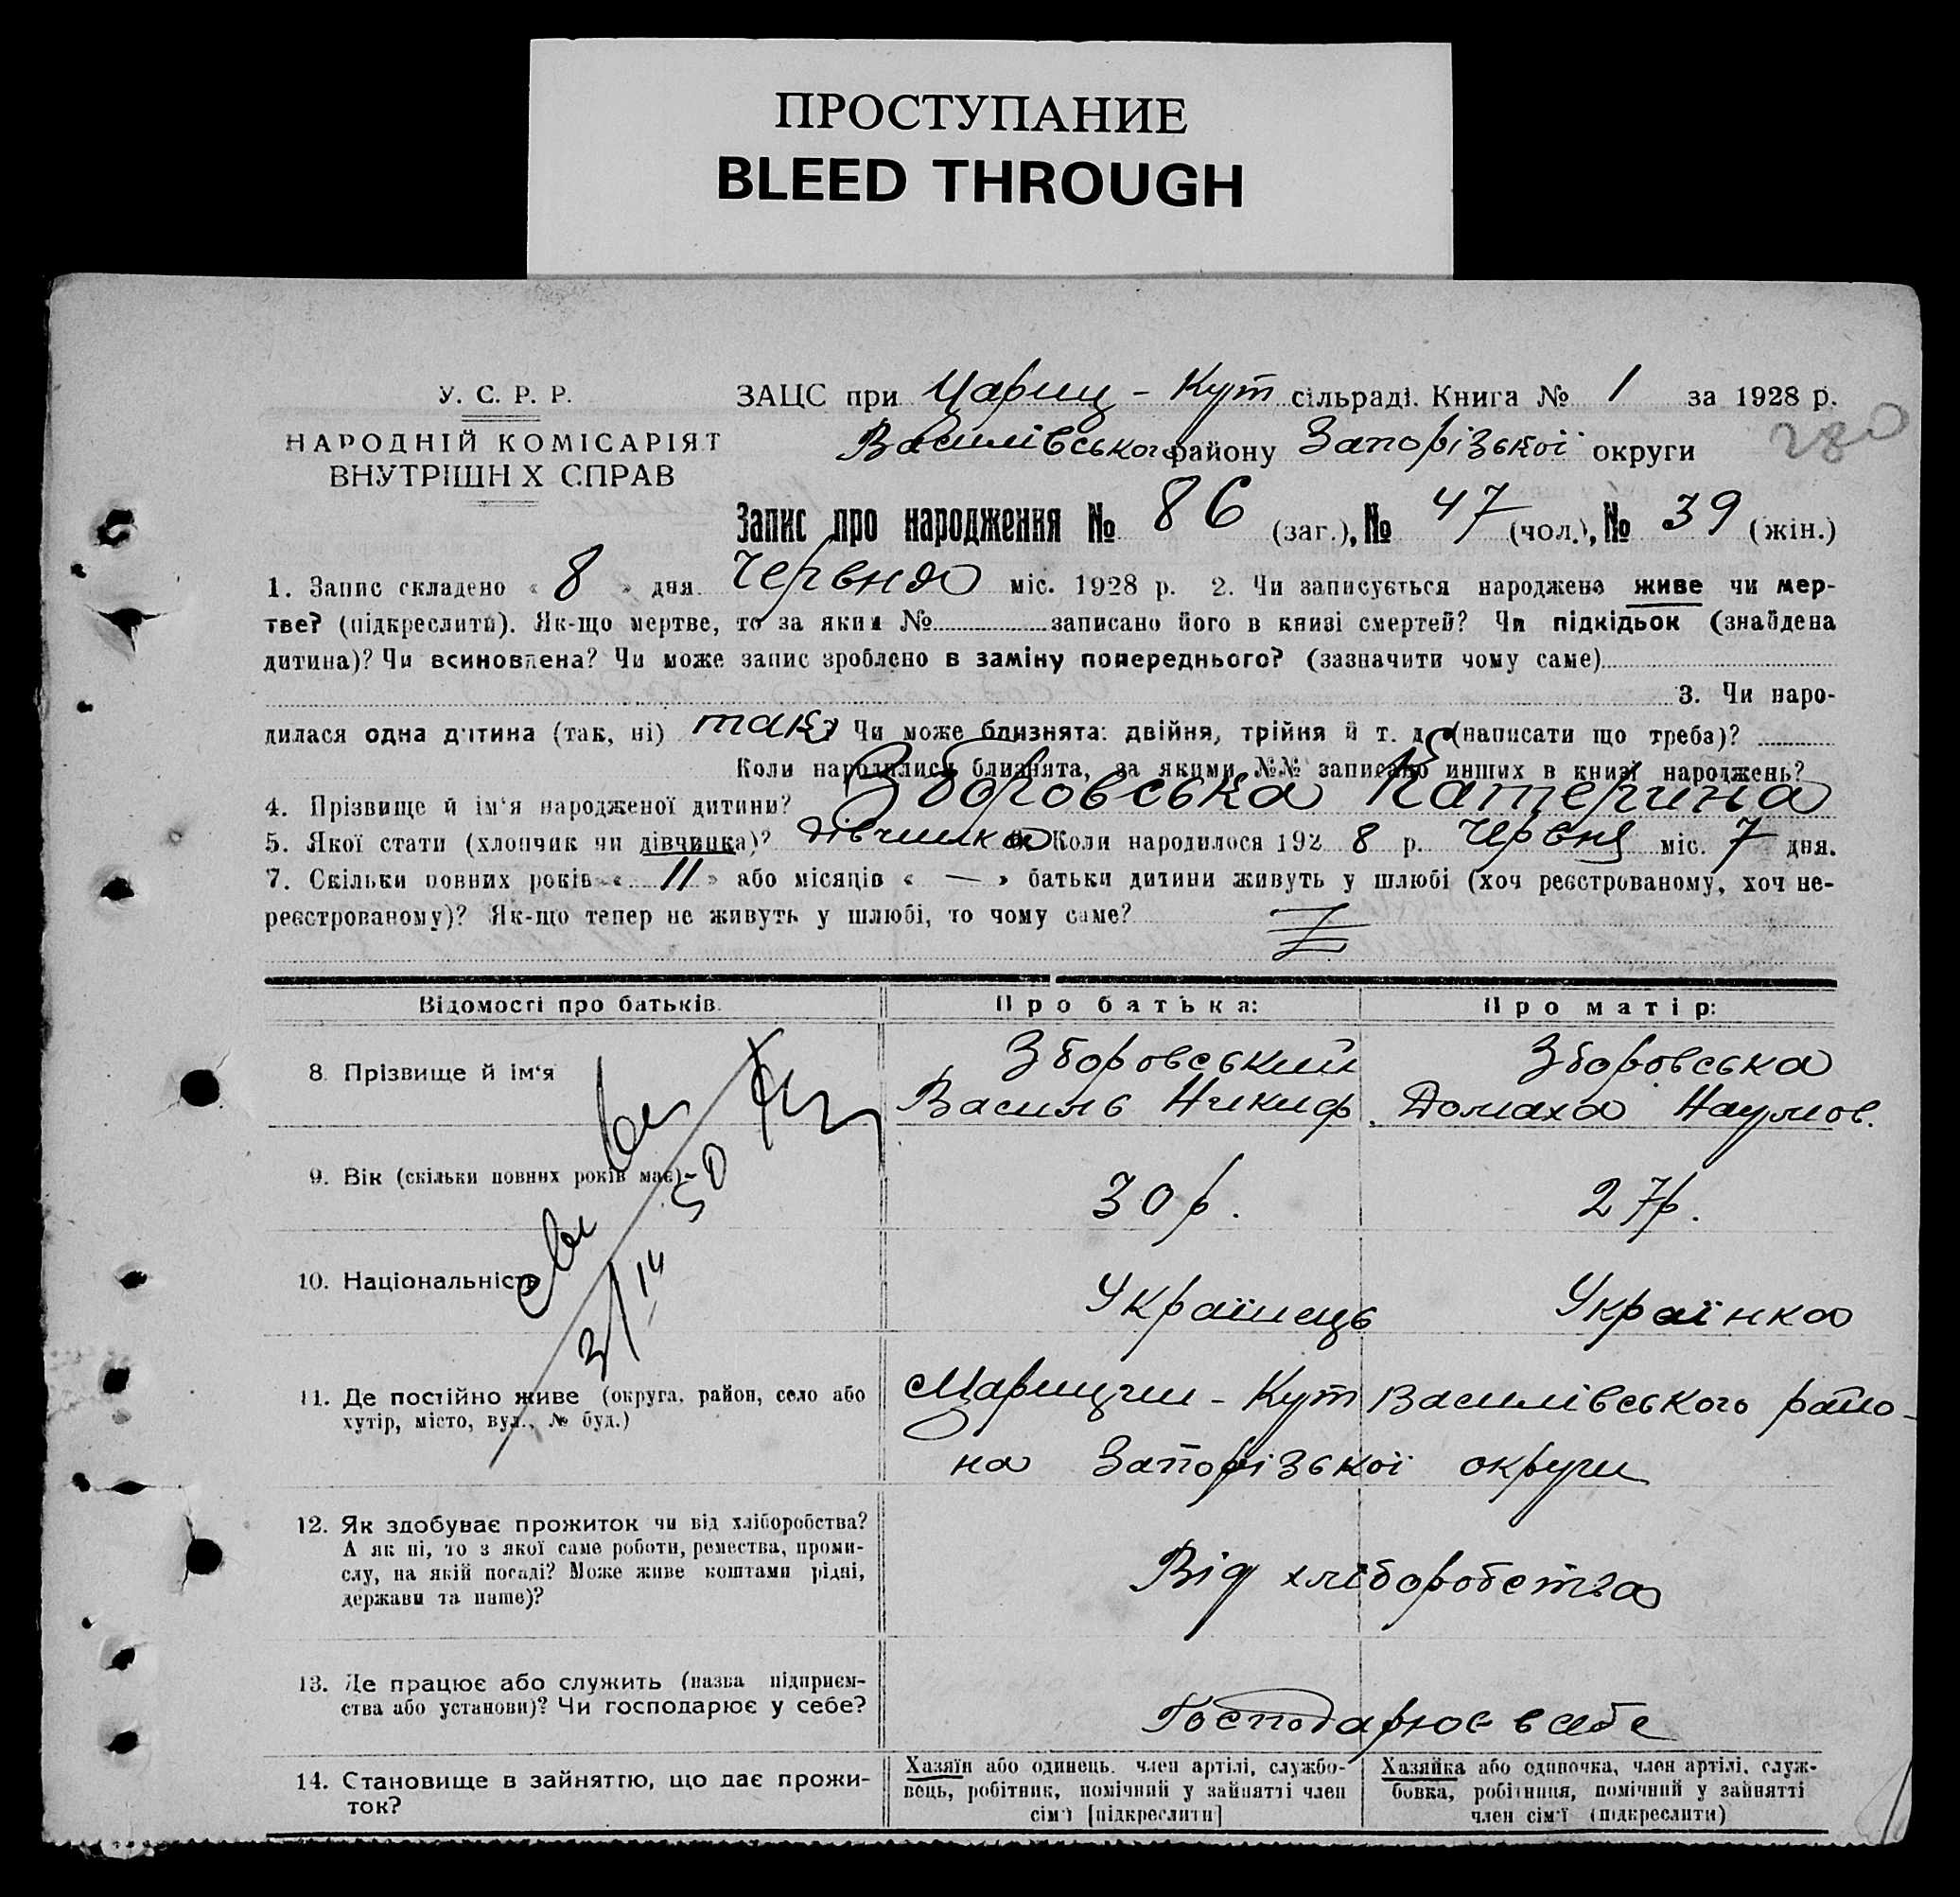 ПРОСТУПАНИЕ
BLEED THROUGH
У. С. Р. Р.
НАРОДНІЙ КОМІСАРІЯТ
ВНУТРІШН Х СПРАВ
ЗАЦС при Цариц - Кут сільраді. Книга № 1 за 1928 р.
Василівського району Запорізької округи
280
Запис про народження № 86 (заг.), № 47 (чол.), № 39 (жін.)
1. Запис складено « 8 » дня Червня міс. 1928 р. 2. Чи записується народжене живе чи мер-
тве? (підкреслити). Як-що мертве, то за яким № записано його в книзі смертей? Чи підкідьок (знайдена
дитина)? Чи всиновлена? Чи може запис зроблено в заміну попереднього? (зазначити чому саме)
3. Чи наро-
дилася одна дитина (так, ні) так Чи може близнята: двійня, трійня й т. д. (написати що треба)?
Коли народилися близнята, за якими №№ записано инших в книзі народжень?
4. Прізвище й ім'я народженої дитини? Зборовська Катерина
5. Якої стати (хлопчик чи дівчинка)? дівчинка Коли народилося 192 8 р. Червня міс. 7 дня.
7. Скільки повних років « 11 » або місяців « — » батьки дитини живуть у шлюбі (хоч реєстрованому, хоч не-
реєстрованому)? Як-що тепер не живуть у шлюбі, то чому саме?
Відомості про батьків.
Про батька:
Про матір:
8. Прізвище й ім'я
Зборовський
Василь Никиф.
Зборовська
Домаха Наумов.
9. Вік (скільки повних років має)
30 р.
27 р.
10. Національність
Українець
Українка
11. Де постійно живе (округа, район, село або
хутір, місто, вул., № буд.)
Царицин - Кут Василівського райо-
на Запорізької округи
12. Як здобуває прожиток чи від хліборобства?
А як ні, то з якої саме роботи, ремества, проми-
слу, на якій посаді? Може живе коштами рідні,
держави та инше)?
Від хліборобства
13. Де працює або служить (назва підприєм-
ства або установи)? Чи господарює у себе?
Господарює в себе
14. Становище в зайняттю, що дає прожи-
ток?
Хазяїн або одинець. член артілі, службо-
вець, робітник, помічний у зайнятті член
сім'ї [підкреслити]
Хазяйка або одиночка, член артілі, служ-
бовка, робітниця, помічний у зайнятті
член сім'ї (підкреслити)